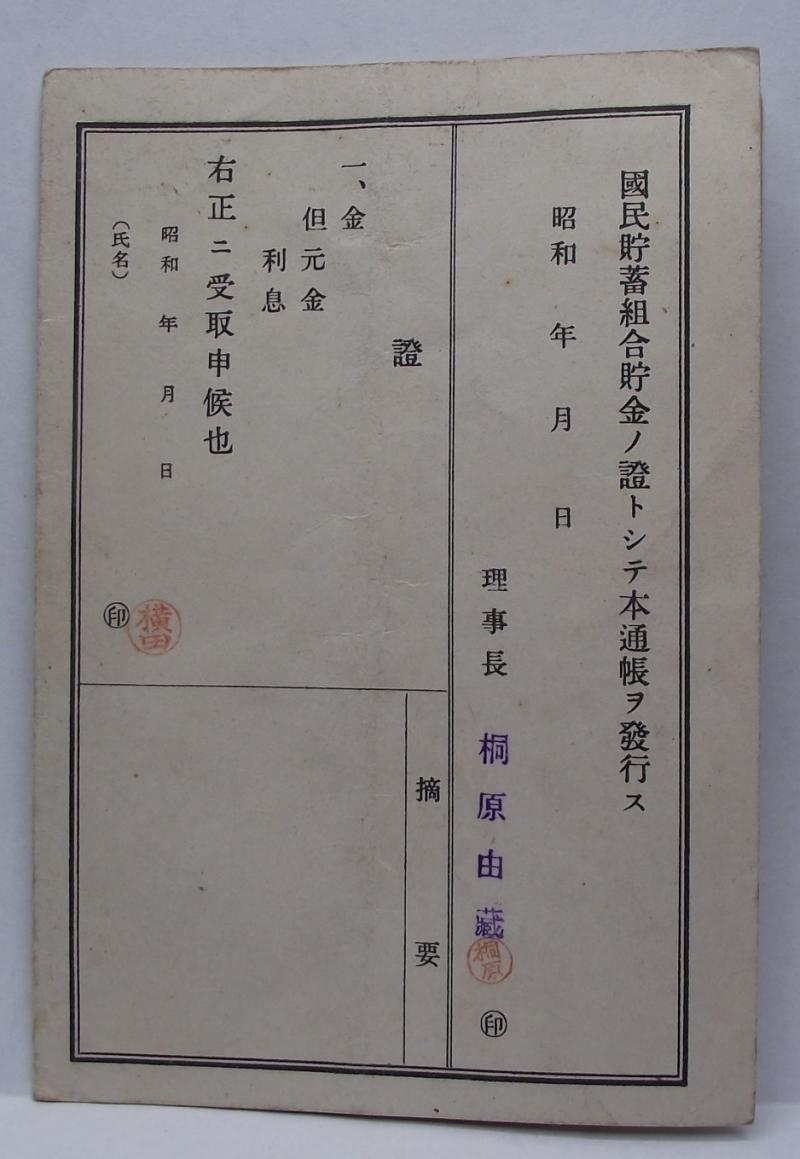 國民貯蓄組合貯金ノ證トシテ本通帳ヲ發行ス
昭和 年 月 日
理事長 桐原由藏 桐原 ㊞
證
一、金
但元金
利息
右正ニ受取申候也
昭和 年 月 日
(氏名) ㊞ 横田
摘要